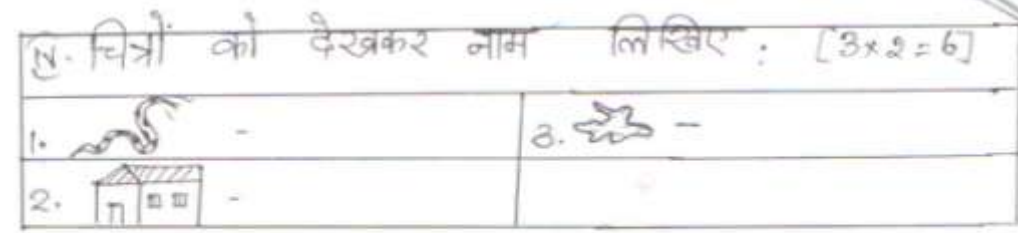 IV. चित्रों को देखकर नाम लिखिए : [3x2=6]
1. -
3. -
2. -